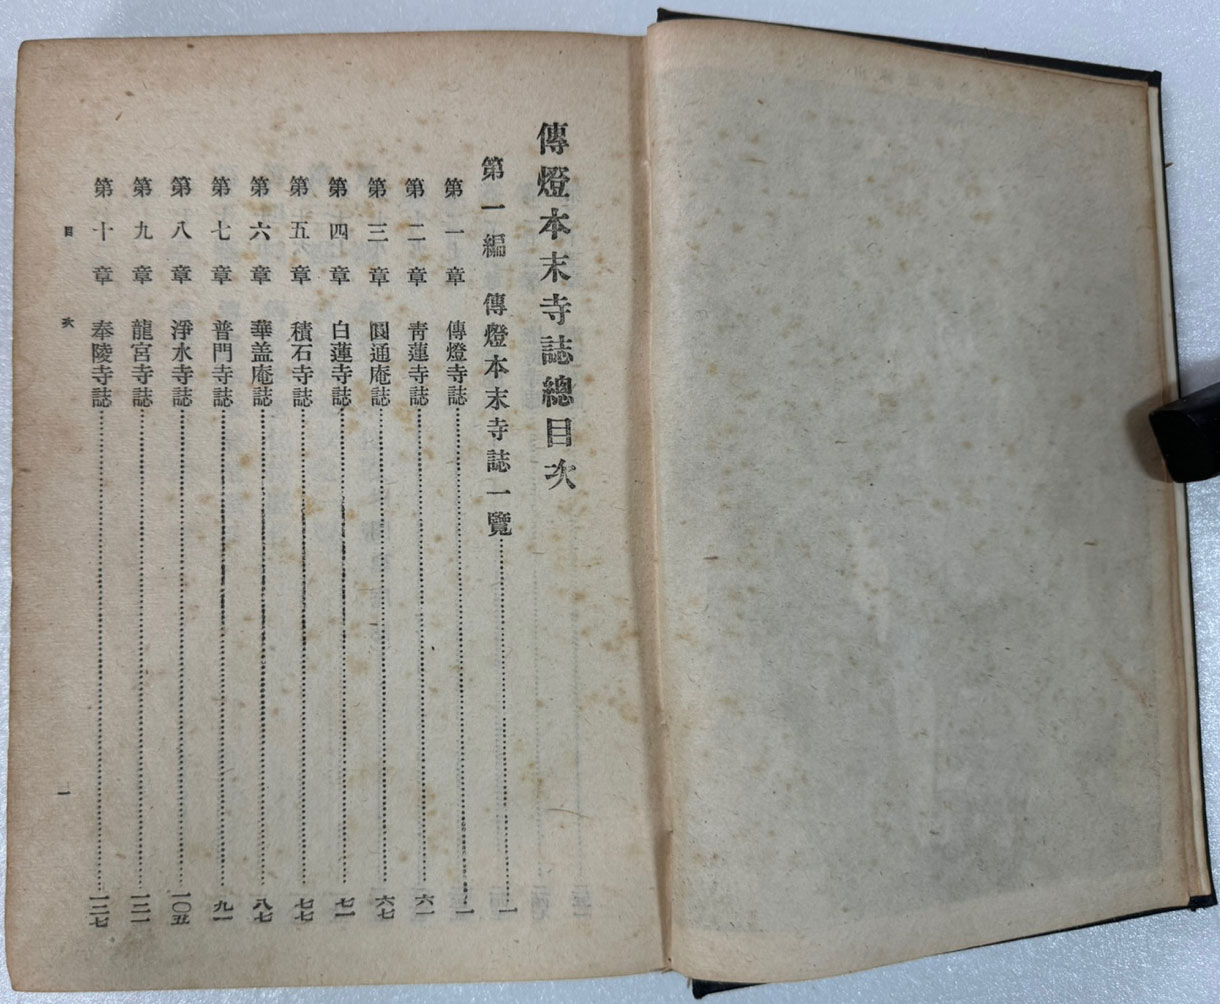 傳燈本末寺誌總目次
第一編 傳燈本末寺誌一覽 一
第一章 傳燈寺誌 一
第二章 靑蓮寺誌 六一
第三章 圓通庵誌 六七
第四章 白蓮寺誌 七一
第五章 積石寺誌 七七
第六章 華盖庵誌 八七
第七章 普門寺誌 九一
第八章 淨水寺誌 一〇五
第九章 龍宮寺誌 一二一
第十章 奉陵寺誌 一二七
目次 一